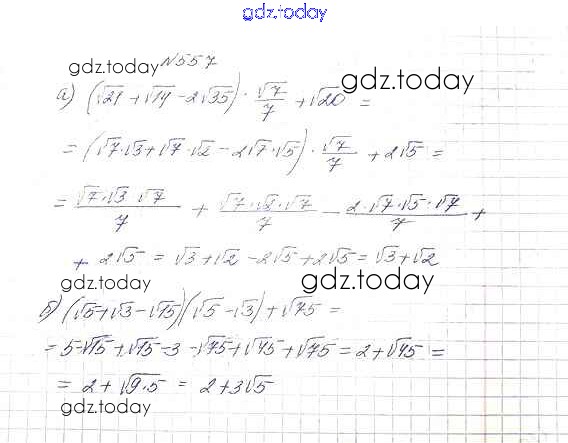 gdz.today
gdz.today №557
а) (√21 + √14 - 2√35) · √7/7 + √20 =
gdz.today
= (√7·√3 + √7·√2 - 2√7·√5) · √7/7 + 2√5 =
= √7·√3·√7/7 + √7·√2·√7/7 - 2·√7·√5·√7/7 +
+ 2√5 = √3 + √2 - 2√5 + 2√5 = √3 + √2
gdz.today gdz.today
б) (√5 + √3 - √15)(√5 - √3) + √75 =
= 5 - √15 + √15 - 3 - √75 + √45 + √75 = 2 + √45 =
= 2 + √9·5 = 2 + 3√5
gdz.today